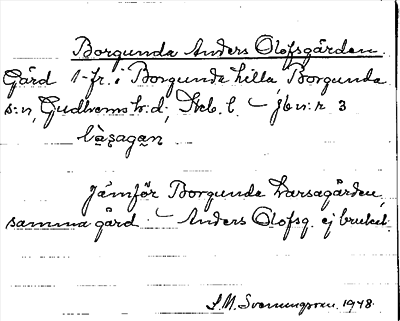 Borgunda Anders Olofsgården.
Gård 1-fr. i Borgunda Lilla Borgunda
s:n, Gudhems h:d; Skb. l. – jbn:r 3
làṣagan
Jämför Borgunda Larsagården,
samma gård. – Anders Olofsg. ej brukat.
S.M. Svenungsson. 1948.